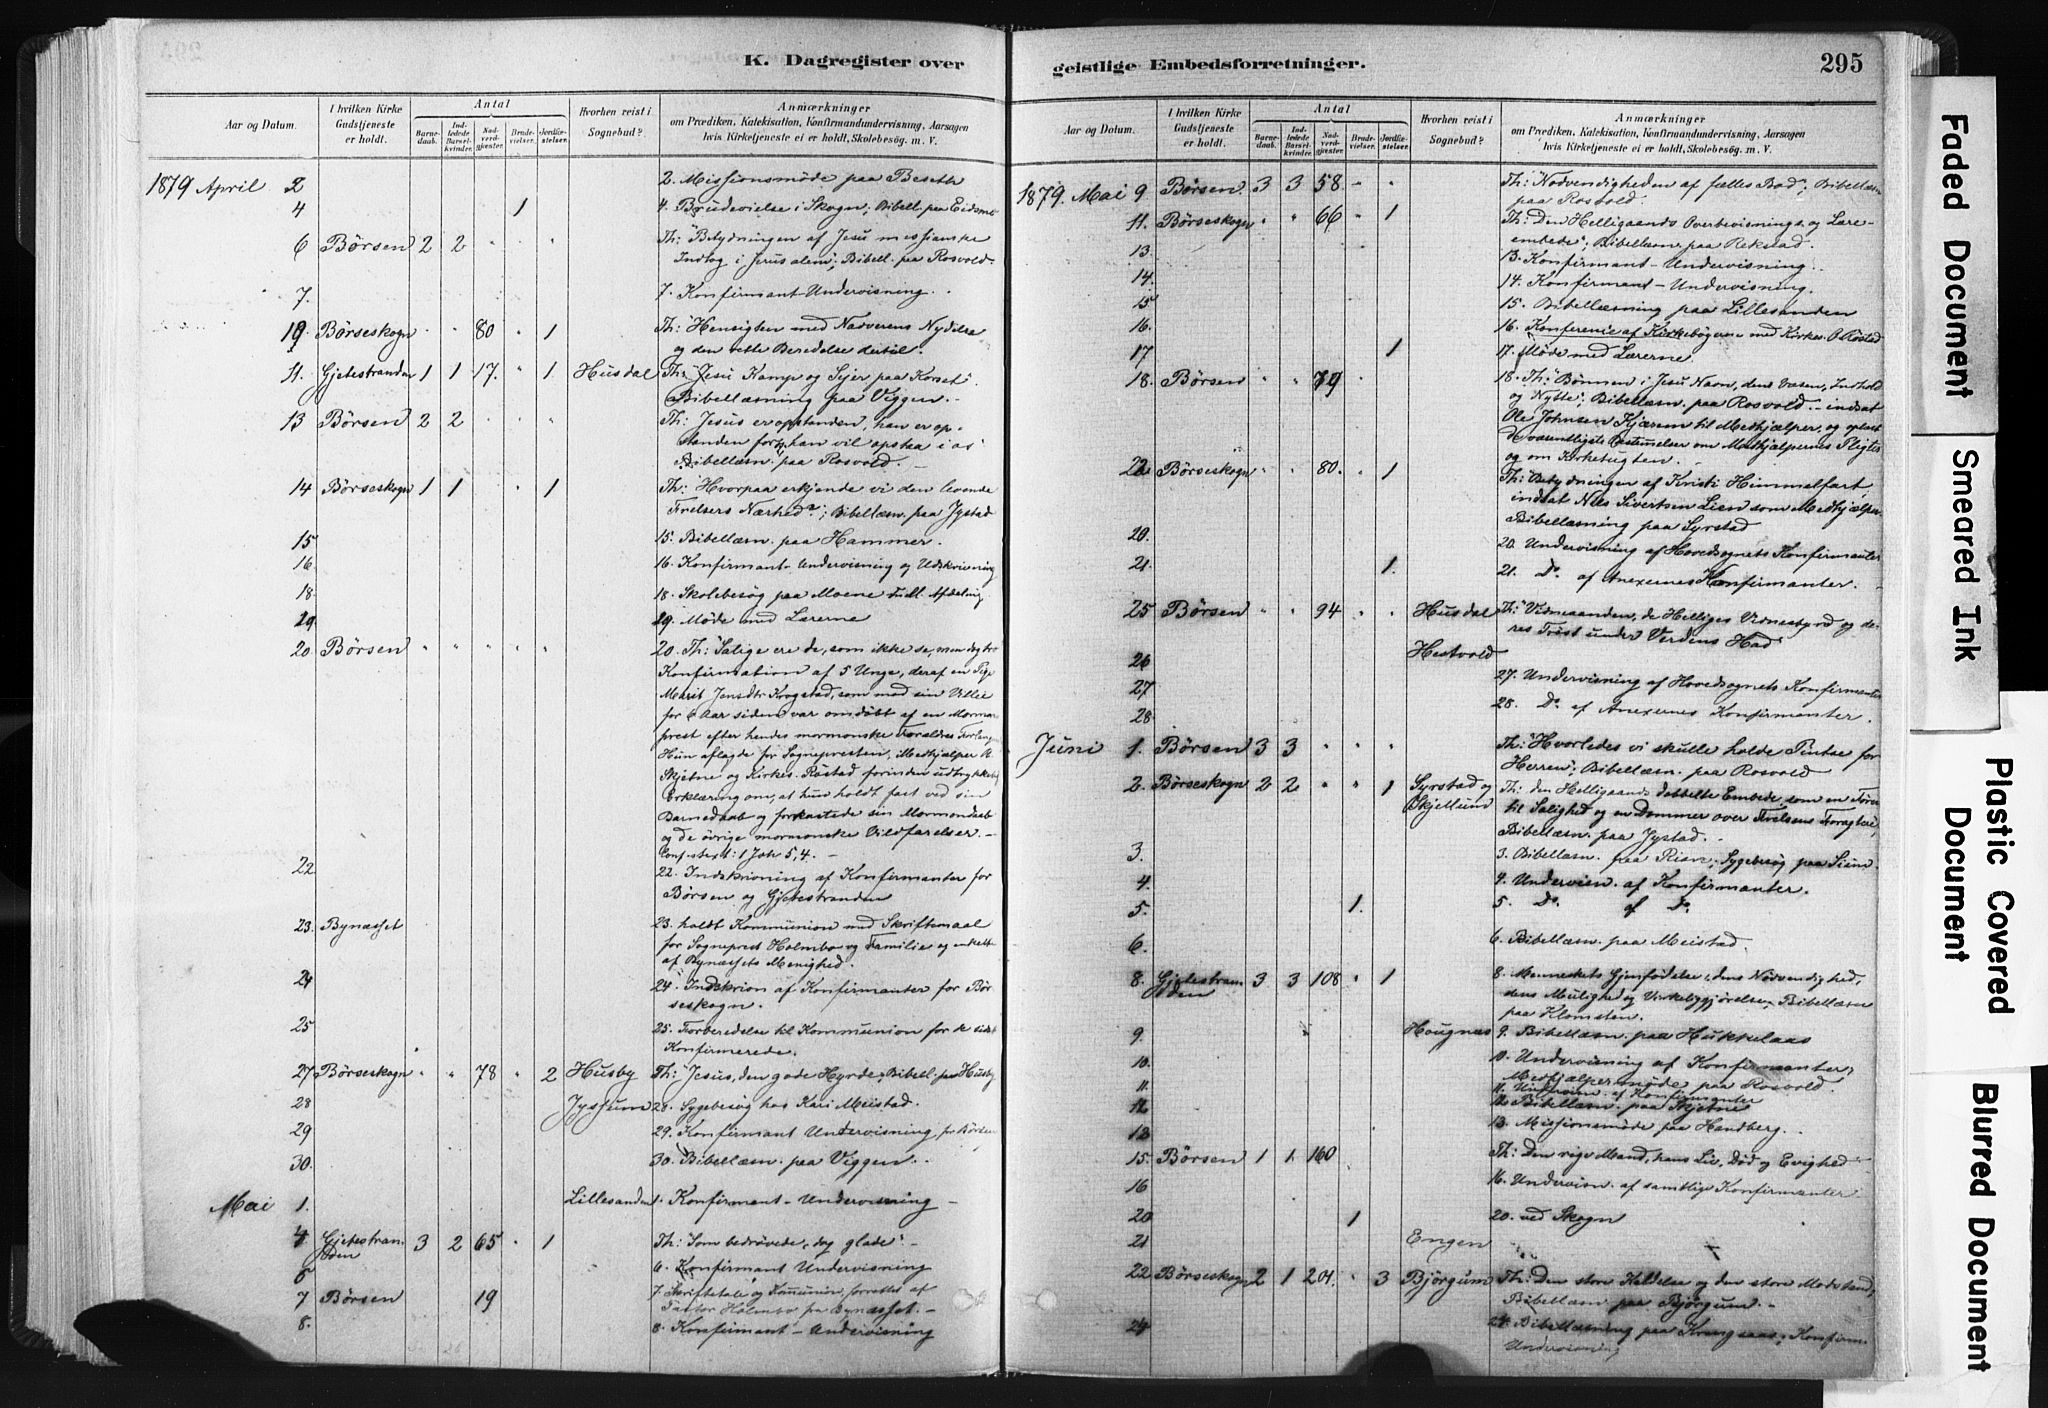 K. Dagregister over
Aar og Datum.
I hvilken Kirke Gudstjeneste er holdt.
Antal
Barnedaab.
Indledede Barselkvinder.
Nadverdgjester.
Brudevielser.
Jordfæstelser.
Hvorhen reist i Sognebud?
Anmærkninger
om Prædiken, Katekisation, Konfirmandundervisning, Aarsagen
hvis Kirketjeneste ei er holdt, Skolebesøg. m. V.
1879 April 2 2. Missionsmöde paa Beseth
4 1 4. Brudevielse i Skogn, Bibell. paa Eidsmo
6 Börsen 2 2 " " " Th: "Betydningen af Jesu messianske
Indtog i Jerusalem"; Bibell. paa Rosvold.
7. 7. Konfirmant-Undervisning.
10. Börseskogn " " 80 " 1 Th: "Hensigten med Nadverens Nydelse
og den rette Beredelse dertil.
11. Gjetestranden 1 1 17. " 1 Husdal Th: "Jesu Kamp og Sejer paa Korset"
Bibellæsning paa Viggen.
13 Börsen 2 2 " " " Th: Jesus er opstanden, han er op-
standen for os, han vil opstaa i os"
Bibellæsn. paa Rosvold.
14 Börseskogn 1 1 " " 1 Th: "Hvorpaa erkjende vi den levende
Frelsers Nærhed?"; Bibellæsn. paa Jystad
15 15. Bibellæsn. paa Hammer.
16 16. Konfirmant-Undervisning og Udskrivning
18. 18. Skolebesög paa Moene Afdeling
19 19. Möde med Lærerne
20. Börsen " " " " " 20. Th: "Salige ere de, som ikke se, men dog tro
Konfirmation af 5 Unge, deraf en Pige
Marit Jensdtr Krogstad, som mod sin Villie
for 6 Aar siden var omdöbt af en Mormon
prest efter hendes mormonske Foraldres Forlang
Hun aflagde for Sognepresten, Medhjælper
Skjetne og Kirkes. Röstad forinden udtrykkelig
Erklæring om, at hun holdt fast ved sin
Barnedaab og forkastede sin Mormondaab
og de övrige mormonske Vildfarelser.
Conf.stext: 1 Joh 5,4.
22 22. Indskrivning af Konfirmanter for
Börsen og Gjetestranden
23. Bynæsset 23. holdt Kommunion med Skriftemaal
for Sogneprest Holmbo og Familie og enkelte
af Bynæssets Menighed.
24 24. Indskrivn af Konfirmanter for Bör
seskogn.
25 25. Forberedelse til Kommunion for de sidst
Konfirmerede.
27 Börseskogn " " 78 " 2 Husby Th: "Jesus, den gode Hyrde", Bibell. paa Husby
28 Jyssum 28. Sygebesög hos Kari Meistad.
29 29. Konfirmant Undervisning for Börsen
30. 30. Bibellæsn. paa Viggen.
Mai 1. Lillesanden 1. Konfirmant-Undervisning
4 Gjetestran-
den 3 2 65 " 1 Th: "Som bedrövede, dog glade".
6 6. Konfirmant Undervisning
7 Börsen 19 7 Skriftetale og Communion, forrettet af
Pastor Holmbo fra Bynæsset.
8. 8. Konfirmant-Undervisning
geistlige Embedsforretninger.
295
Aar og Datum.
I hvilken Kirke Gudstjeneste er holdt.
Antal
Barnedaab.
Indledede Barselkvinder.
Nadverdgjester.
Brudevielser.
Jordfæstelser.
Hvorhen reist i Sognebud?
Anmærkninger
om Prædiken, Katekisation, Konfirmandundervisning, Aarsagen
hvis Kirketjeneste ei er holdt, Skolebesøg. m. V.
1879. Mai 9 Börsen. 3 3 58 " " Th: Nödvendigheden af fælles Bod"; Bibellæsn
paa Rosvold.
11. Börseskogn " " 66 " 1 Th: Den Helligaands Overbevisnings- og Lære-
embede"; Bibellæsn. paa Rekstad.
13. 13. Konfirmant-Undervisning.
14. 14. Konfirmant-Undervisning.
15 15. Bibellæsning paa Lillesanden
16. 16. Konference af Kirkebögerne med Kirkes. O. Röstad
17 1 17. Möde med Lærerne
18. Börsen " " 79 18. Th: "Bönnen i Jesu Navn, dens Væsen, Indhold
og Nytte"; Bibellæsn. paa Rosvold. - indsat
Ole Johnsen Kjærem til Medhjælper, og oplæst
de væsentligste Bestemmelser om Medhjælpernes Pligter
og om Kirketugten.
22 Börseskogn " " 80. " 1 Th: Betydningen af Kristi Himmelfart
indsat Nils Sivertsen Lien som Medhjælper.
Bibellæsning paa Syrstad
20. 20. Undervisning af Hovedsognets Konfirmanter
21. 1. 21. Do. af Anexernes Konfirmanter.
25 Börsen " " 94 " " Husdal Th: "Vidneaanden, de Helliges Vidnesbyrd og de-
res Tröst under Verdens Had
26 Hestvold
27 27. Undervisning af Hovedsognets Konfirmanter
28 28. Do. af Anexernes Konfirmanter.
Juni 1. Börsen 3 3 " " " Th: "Hvorledes vi skulle holde Pintse for
Herren"; Bibellæsn. paa Rosvold
2. Börseskogn 2 2 " " 1 Syrstad og
Skjetlund Th: den Helligaands dobbelte Embede, som en Förer
til Salighed og en Dommer over Frelsens Foragtere,
Bibellæsn. paa Jystad.
3. 3. Bibellæsn. paa Risn, Sygebesög paa Siem
4. 4. Undervisn. af Konfirmanter.
5. 1. 5. Do. af Do.
6. 6. Bibellæsn. paa Meistad.
8. Gjetestran-
den 3 3 108 " 1 8. Menneskets Gjenfödelse, dens Nödvendighed,
dens Mulighed og Virkeliggjörelse, Bibellæsn
paa Klomsten.
9. Hougnæs 9. Bibellæsn. paa Hukkelaas
10. 10. Undervisning af Konfirmanter,
Medhjælpermöde paa Rosvold.
11. 11. Undervisn. af Konfirmanter
12 12 Bibellæsn. paa Skjetne
13 13. Missionsmöde paa Handberg.
15. Börsen 1 1 160 Th: Den rige Mand, hans Liv, Död og Evighed
16 16. Undervisn. af samtlige Konfirmanter
20 1 20. ved Skogn
21 Engen
22 Börseskogn 2 1 201. " 3 Björgum Th: Den store Heldelse og den store Modstand,
Bibellæsn. paa Björgum.
24 24. Bibellæsning paa Krangsaas, Konfirm.
Undervisning
Faded Document
Smeared Ink
Plastic Covered Document
Blurred Document